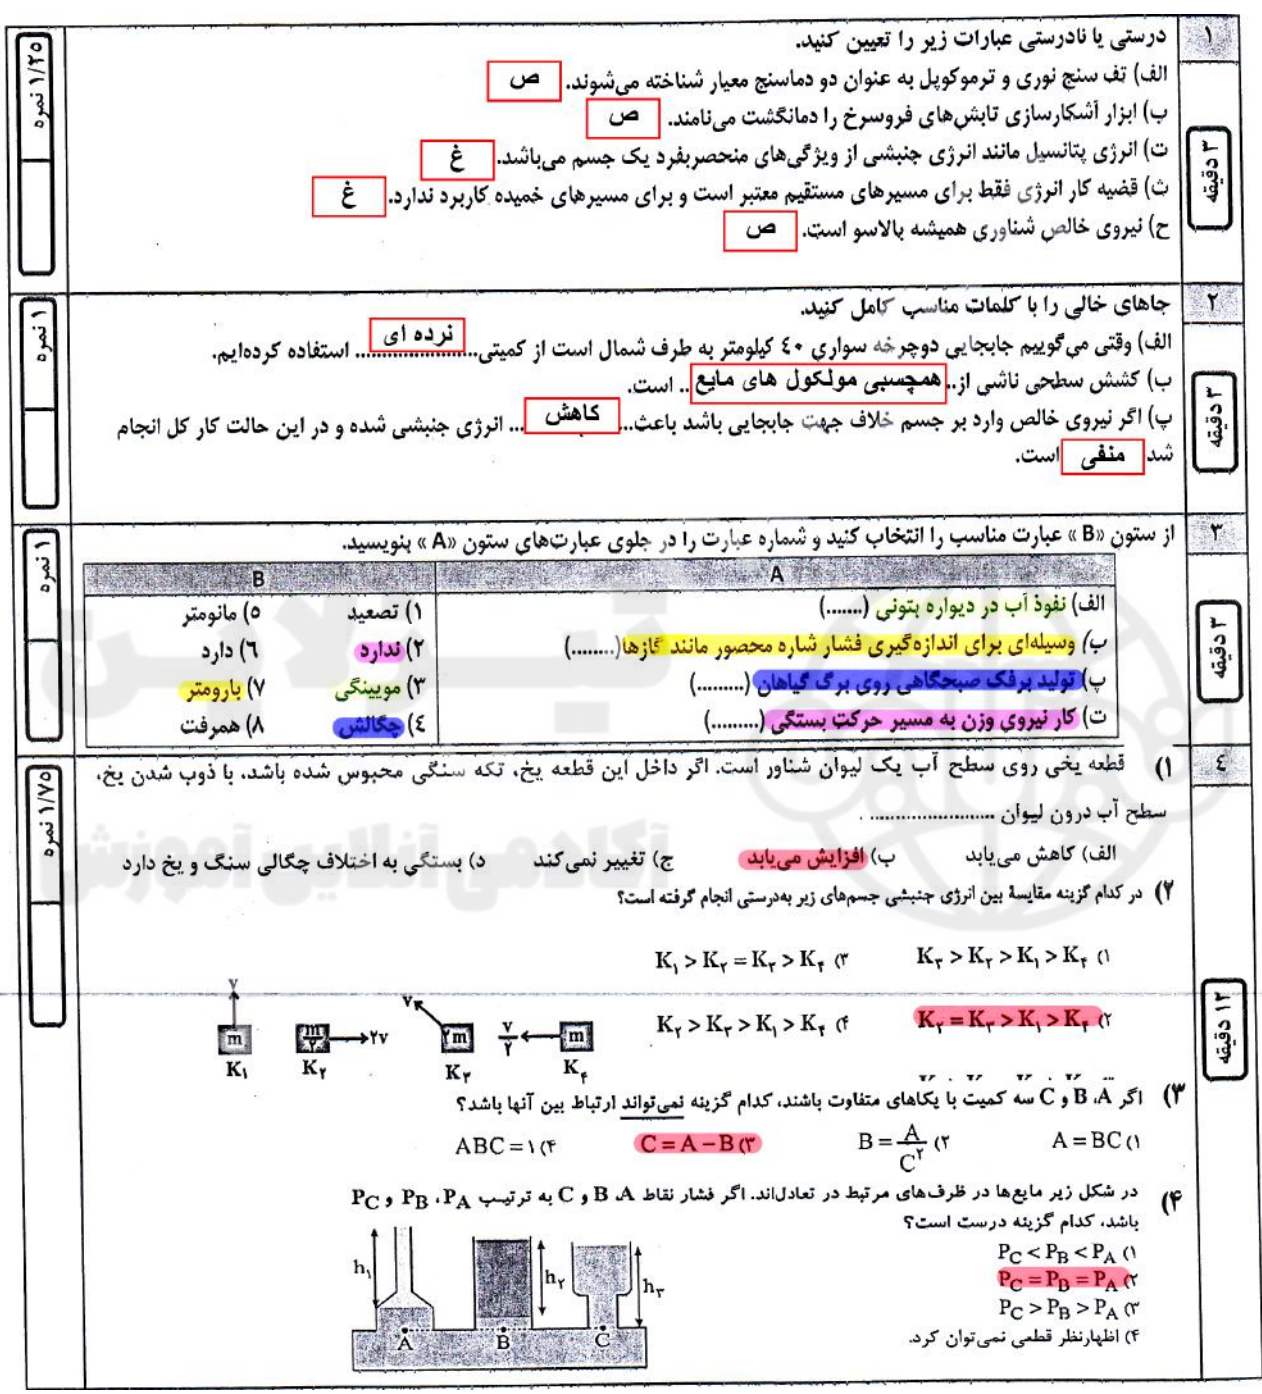 ۱
۱/۲۵ نمره
۳ دقیقه
درستی یا نادرستی عبارات زیر را تعیین کنید.
الف) تف سنج نوری و ترموکوپل به عنوان دو دماسنج معیار شناخته می‌شوند. ص
ب) ابزار آشکارسازی تابش‌های فروسرخ را دمانگشت می‌نامند. ص
ت) انرژی پتانسیل مانند انرژی جنبشی از ویژگی‌های منحصربفرد یک جسم می‌باشد. غ
ث) قضیه کار انرژی فقط برای مسیرهای مستقیم معتبر است و برای مسیرهای خمیده کاربرد ندارد. غ
ح) نیروی خالص شناوری همیشه بالاسو است. ص
۲
۱ نمره
۳ دقیقه
جاهای خالی را با کلمات مناسب کامل کنید.
الف) وقتی می‌گوییم جابجایی دوچرخه سواری ۴۰ کیلومتر به طرف شمال است از کمیتی... نرده ای ... استفاده کرده‌ایم.
ب) کشش سطحی ناشی از.. همچسبی مولکول های مایع .. است.
پ) اگر نیروی خالص وارد بر جسم خلاف جهت جابجایی باشد باعث... کاهش ... انرژی جنبشی شده و در این حالت کار کل انجام
شد منفی است.
۳
۱ نمره
۳ دقیقه
از ستون «B» عبارت مناسب را انتخاب کنید و شماره عبارت را در جلوی عبارت‌های ستون «A» بنویسید.
A
B
الف) نفوذ آب در دیواره بتونی (.......)
۱) تصعید ۵) مانومتر
ب) وسیله‌ای برای اندازه‌گیری فشار شاره محصور مانند گازها(........)
۲) ندارد ۶) دارد
پ) تولید برفک صبحگاهی روی برگ گیاهان (.........)
۳) مویینگی ۷) بارومتر
ت) کار نیروی وزن به مسیر حرکت بستگی (.........)
۴) چگالش ۸) همرفت
۴
۱/۷۵ نمره
۱۲ دقیقه
۱) قطعه یخی روی سطح آب یک لیوان شناور است. اگر داخل این قطعه یخ، تکه سنگی محبوس شده باشد، با ذوب شدن یخ،
سطح آب درون لیوان ........................ .
الف) کاهش می‌یابد ب) افزایش می‌یابد ج) تغییر نمی‌کند د) بستگی به اختلاف چگالی سنگ و یخ دارد
۲) در کدام گزینه مقایسهٔ بین انرژی جنبشی جسم‌های زیر به‌درستی انجام گرفته است؟
۱) K۳ > K۲ > K۱ > K۴
۳) K۱ > K۲ = K۳ > K۴
۲) K۲ = K۳ > K۱ > K۴
۴) K۲ > K۳ > K۱ > K۴
v m K۱
m/۲ ۲v K۲
v ۲m K۳
v/۲ m K۴
۳) اگر A، B و C سه کمیت با یکاهای متفاوت باشند، کدام گزینه نمی‌تواند ارتباط بین آنها باشد؟
۱) A = BC ۲) B = A/C۲ ۳) C = A − B ۴) ABC = ۱
۴) در شکل زیر مایع‌ها در ظرف‌های مرتبط در تعادل‌اند. اگر فشار نقاط A، B و C به ترتیب PA، PB و PC
باشد، کدام گزینه درست است؟
۱) PC < PB < PA
۲) PC = PB = PA
۳) PC > PB > PA
۴) اظهارنظر قطعی نمی‌توان کرد.
h۱ h۲ h۳
A B C
تیولاین
آکادمی آنلاین آموزش